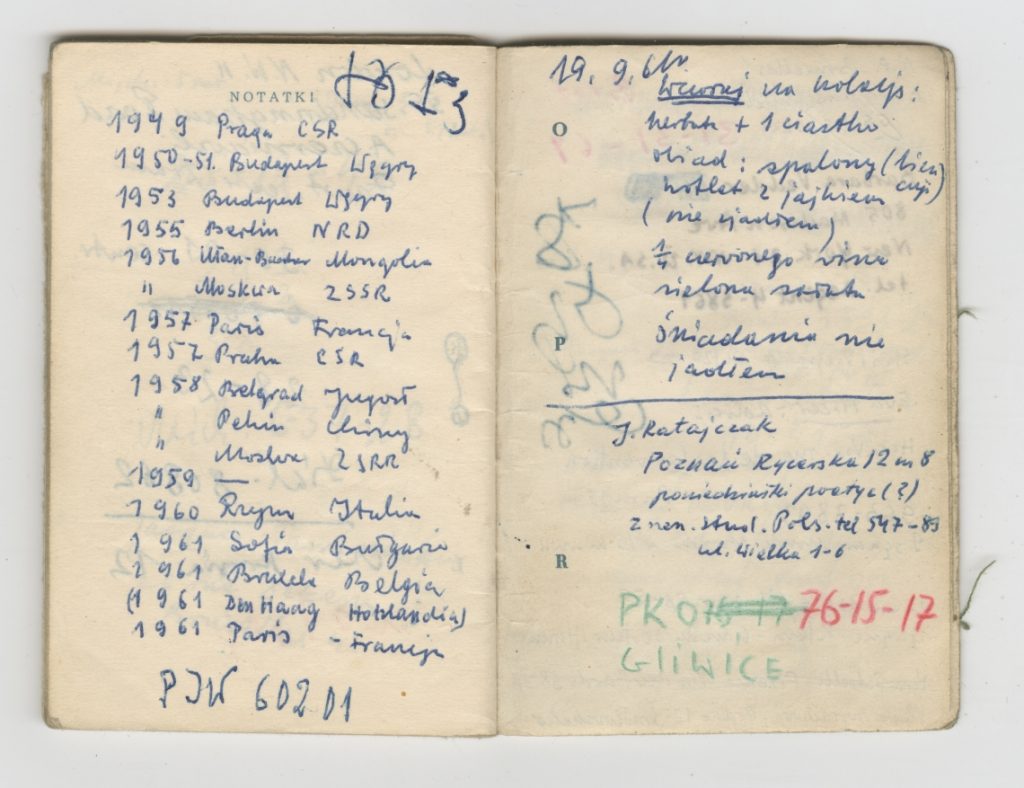 NOTATKI
1949 Praga CSR
1950-51. Budapest Węgry
1953 Budapest Węgry
1955 Berlin NRD
1956 Ułan-Bator Mongolia
" Moskwa ZSSR
1957 Paris Francja
1957 Praha CSR
1958 Belgrad Jugosł
" Pekin Chiny
" Moskwa ZSRR
1959 —
1960 Rzym Italia
1961 Sofia Bułgaria
1961 Bruksela Belgia
(1961 Den Haag Hollandia)
1961 Paris - Francja
PIW 602 01
19. 9. 61r
Wczoraj na kolację:
herbata + 1 ciastko
O
obiad: spalony
kotlet z jajkiem
(nie zjadłem)
1/4 czerwonego wina
zielona sałata
P
Śniadania nie
jadłem
J. Ratajczak
Poznań Rycerska 12 m 8
poniedziałki poetyc (?)
z nen. stud. Pols. tel 547-89
R
ul. Wielka 1-6
PK 076-17 76-15-17
GLIWICE